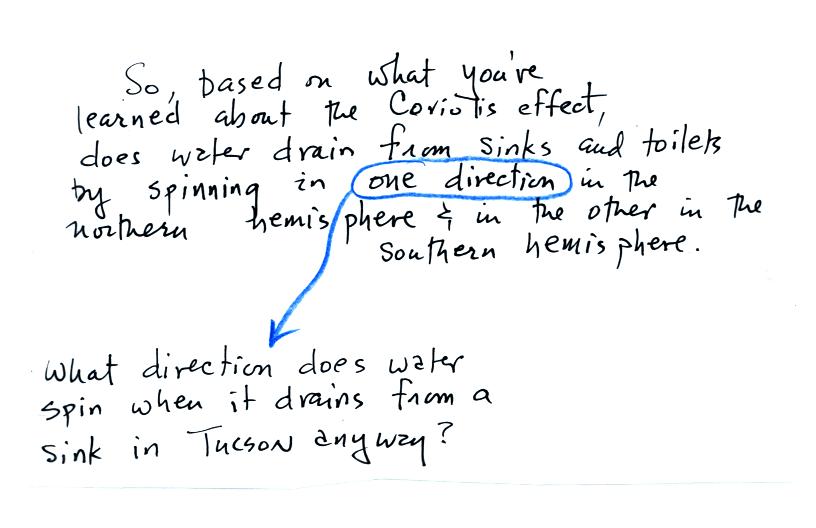 So, based on what you've
learned about the Coriolis effect,
does water drain from sinks and toilets
by spinning in one direction in the
northern hemisphere & in the other in the
southern hemisphere.
What direction does water
spin when it drains from a
sink in Tucson anyway?